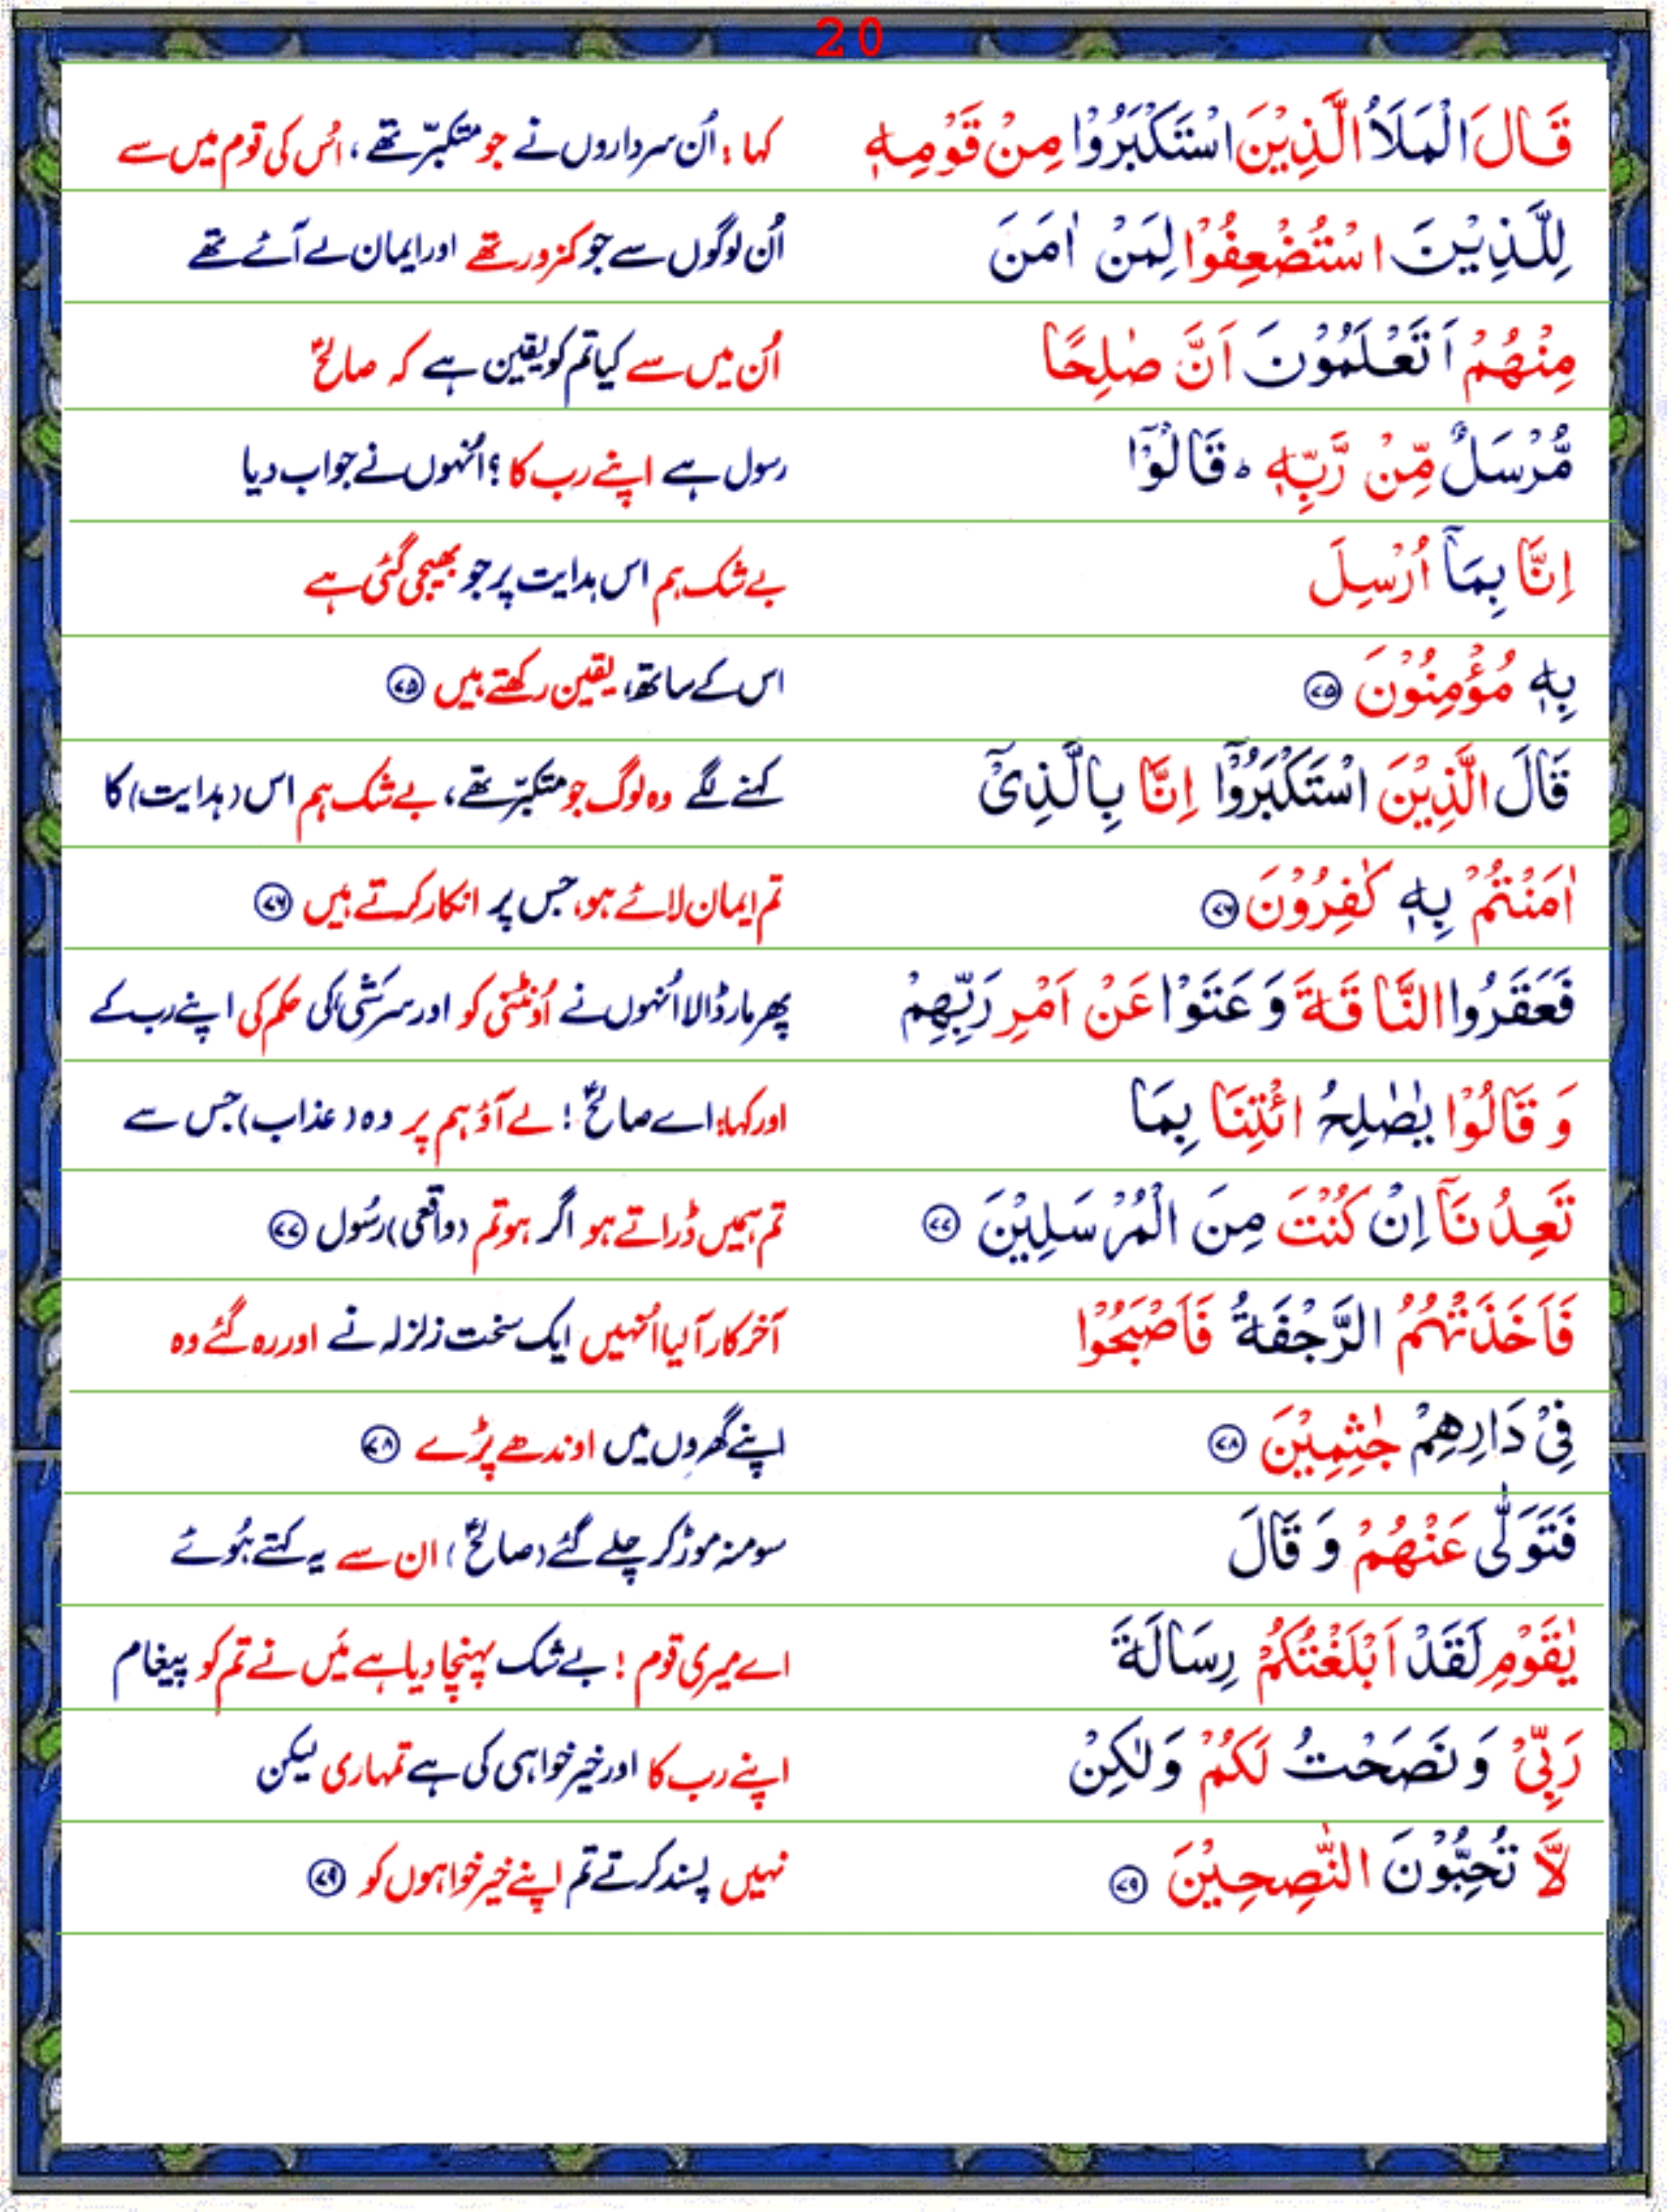 20
قَالَ الْمَلَاُ الَّذِيْنَ اسْتَكْبَرُوْا مِنْ قَوْمِهٖ کہا: اُن سرداروں نے جو متکبّر تھے، اُس کی قوم میں سے
لِلَّذِيْنَ اسْتُضْعِفُوْا لِمَنْ اٰمَنَ اُن لوگوں سے جو کمزور تھے اور ایمان لے آئے تھے
مِنْهُمْ اَتَعْلَمُوْنَ اَنَّ صٰلِحًا اُن میں سے کیا تم کو یقین ہے کہ صالحؑ
مُّرْسَلٌ مِّنْ رَّبِّهٖ ؕ قَالُوْٓا رسول ہے اپنے رب کا ؟ اُنہوں نے جواب دیا
اِنَّا بِمَآ اُرْسِلَ بے شک ہم اس ہدایت پر جو بھیجی گئی ہے
بِهٖ مُؤْمِنُوْنَ ۷۵ اس کے ساتھ، یقین رکھتے ہیں ۷۵
قَالَ الَّذِيْنَ اسْتَكْبَرُوْٓا اِنَّا بِالَّذِيْٓ کہنے لگے وہ لوگ جو متکبّر تھے، بے شک ہم اس (ہدایت) کا
اٰمَنْتُمْ بِهٖ كٰفِرُوْنَ ۷۶ تم ایمان لائے ہو، جس پر انکار کرتے ہیں ۷۶
فَعَقَرُوا النَّاقَةَ وَ عَتَوْا عَنْ اَمْرِ رَبِّهِمْ پھر مار ڈالا اُنہوں نے اُونٹنی کو اور سرکشی کی حکم کی اپنے رب کے
وَ قَالُوْا يٰصٰلِحُ ائْتِنَا بِمَا اور کہا: اے صالحؑ ! لے آؤ ہم پر وہ (عذاب) جس سے
تَعِدُنَآ اِنْ كُنْتَ مِنَ الْمُرْسَلِيْنَ ۷۷ تم ہمیں ڈراتے ہو اگر ہو تم (واقعی) رسُول ۷۷
فَاَخَذَتْهُمُ الرَّجْفَةُ فَاَصْبَحُوْا آخر کار آ لیا اُنہیں ایک سخت زلزلہ نے اور رہ گئے وہ
فِيْ دَارِهِمْ جٰثِمِيْنَ ۷۸ اپنے گھروں میں اوندھے پڑے ۷۸
فَتَوَلّٰى عَنْهُمْ وَ قَالَ سو منہ موڑ کر چلے گئے (صالحؑ) ان سے یہ کہتے ہُوئے
يٰقَوْمِ لَقَدْ اَبْلَغْتُكُمْ رِسَالَةَ اے میری قوم ! بے شک پہنچا دیا ہے مَیں نے تم کو پیغام
رَبِّيْ وَ نَصَحْتُ لَكُمْ وَلٰكِنْ اپنے رب کا اور خیر خواہی کی ہے تمہاری لیکن
لَّا تُحِبُّوْنَ النّٰصِحِيْنَ ۷۹ نہیں پسند کرتے تم اپنے خیر خواہوں کو ۷۹